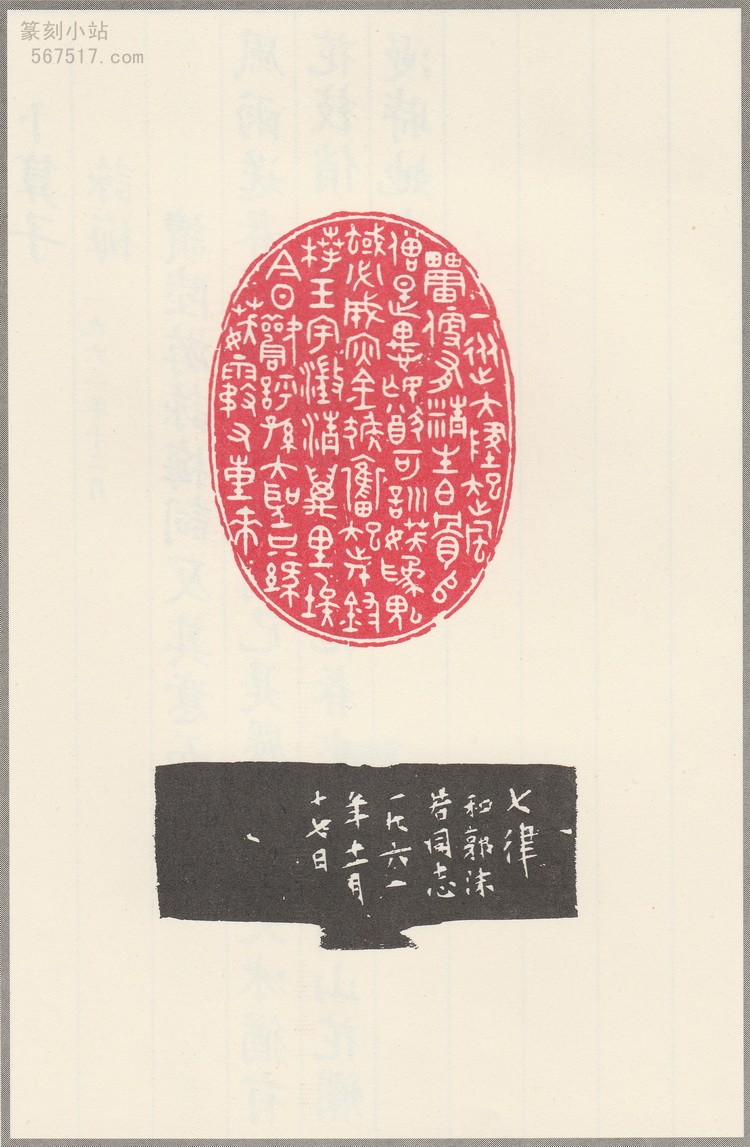 篆刻小站
567517.com
一從大地起風
雷便有精生白骨堆
僧是愚氓猶可訓妖為鬼
蜮必成災金猴奮起千鈞
棒玉宇澄清萬里埃
今日歡呼孫大聖只緣
妖霧又重來
七律
和郭沫
若同志
一九六一
年十一月
十七日